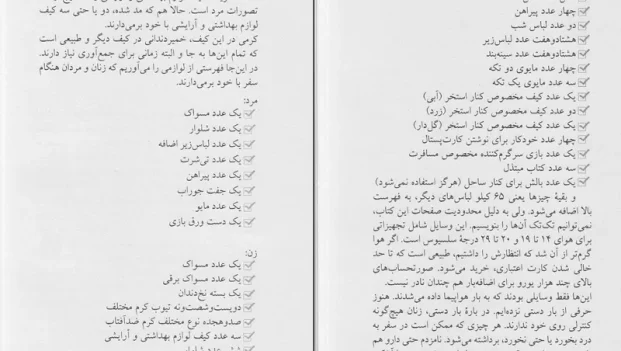 تصورات مرد است. حالا هم که مد شده، دو یا حتی سه کیف
لوازم بهداشتی و آرایشی با خود برمی‌دارند.
کرمی در این کیف، خمیردندانی در کیف دیگر و طبیعی است
که تمام این‌ها به جا و البته زمانی برای جمع‌آوری نیاز دارند.
در این‌جا فهرستی از لوازمی را می‌آوریم که زنان و مردان هنگام
سفر با خود برمی‌دارند.
مرد:
یک عدد مسواک
یک عدد شلوار
یک عدد لباس‌زیر اضافه
یک عدد تی‌شرت
یک عدد پیراهن
یک جفت جوراب
یک عدد مایو
یک دست ورق بازی
زن:
یک عدد مسواک
یک عدد مسواک برقی
یک بسته نخ‌دندان
دویست‌وشصت‌ونه تیوب کرم مختلف
صدوهجده نوع مختلف کرم ضدآفتاب
سه عدد کیف لوازم بهداشتی و آرایشی
چهار عدد پیراهن
دو عدد لباس شب
هشتادوهفت عدد لباس‌زیر
هشتادوهفت عدد سینه‌بند
چهار عدد مایوی دو تکه
سه عدد مایوی یک تکه
یک عدد کیف مخصوص کنار استخر (آبی)
دو عدد کیف مخصوص کنار استخر (زرد)
یک عدد کیف مخصوص کنار استخر (گل‌دار)
چهار عدد خودکار برای نوشتن کارت‌پستال
یک عدد بازی سرگرم‌کننده مخصوص مسافرت
سه عدد کتاب مبتذل
یک عدد بالش برای کنار ساحل (هرگز استفاده نمی‌شود)
و بقیهٔ چیزها یعنی ۶۵ کیلو لباس‌های دیگر، به فهرست
بالا اضافه می‌شود. ولی به دلیل محدودیت صفحات این کتاب،
نمی‌توانیم تک‌تک آن‌ها را بنویسیم. این وسایل شامل تجهیزاتی
برای هوای ۱۴ تا ۱۹ و ۲۰ تا ۲۹ درجهٔ سلسیوس است. اگر هوا
گرم‌تر از آن شد که انتظارش را داشتیم، طبیعی است که تا حد
خالی شدن کارت اعتباری، خرید می‌شود. صورتحساب‌های
بالای چند هزار یورو برای اضافه‌بار هم چندان نادر نیست.
این‌ها فقط وسایلی بودند که به بار هواپیما داده می‌شدند. هنوز
حرفی از بار دستی نزده‌ایم. در بارهٔ بار دستی، زنان هیچ‌گونه
کنترلی روی خود ندارند. هر چیزی که ممکن است در سفر به
درد بخورد یا حتی نخورد، برداشته می‌شود. نامزدم حتی دارو هم